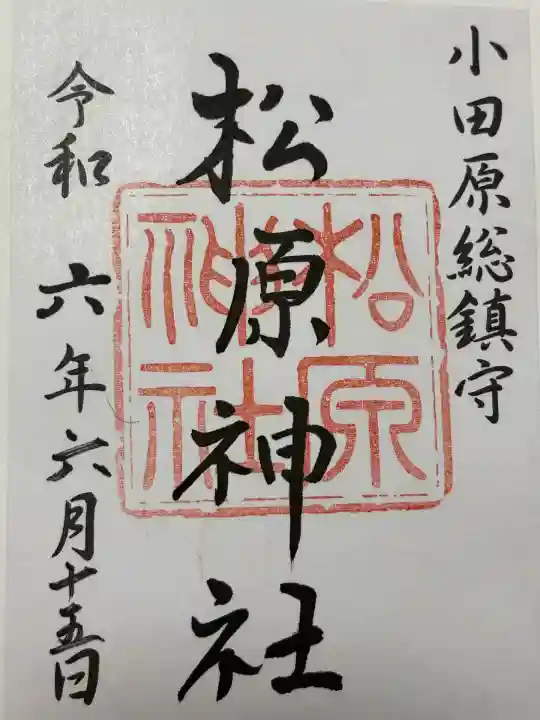 小田原総鎮守
松原神社
松原神社
令和六年六月十五日